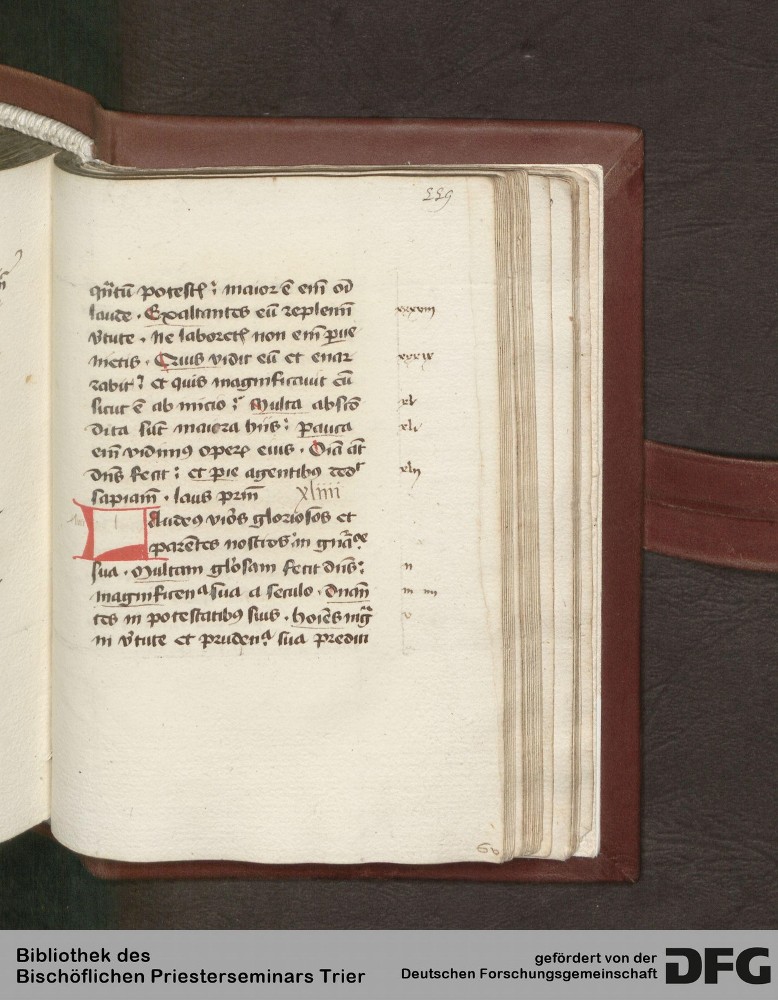 229
qn̄tū potest(is) ꝫ maior ē em̄ oi̅
laude · Exaltantes eū replem̄
v̄tute · ne laboret(is) non em̄ p̱ue
nietis · Quis vidit eū et enar
rabit ꝫ et quis magnificauit eū
sicut ē ab inicio ꝫ Multa abscō
dita sūt maiora hiis ꝫ pauca
em̄ vidimꝰ operꝝ eius · Oīa āt
dn̄s fecit ꝫ et pie agentibꝰ ded᷑
sapiam̄ · laus prm̄ xliiii
Laudeꝰ viōs gloriosōs et
parētes nostros ꝫ in gn̄acōe
sua · Multam glōsam fecit dn̄s ꝫ
magnificenᵃ sua a seculo · Dnan̄
tes in potestatibꝰ suis · hoīes mg̃
ni v̄tute et prudenᵃ sua predin
xxxviii
xxxix
xl
xli
xlii
ii
iii iiii
v
Bibliothek des
Bischöflichen Priesterseminars Trier
gefördert von der
Deutschen Forschungsgemeinschaft
DFG